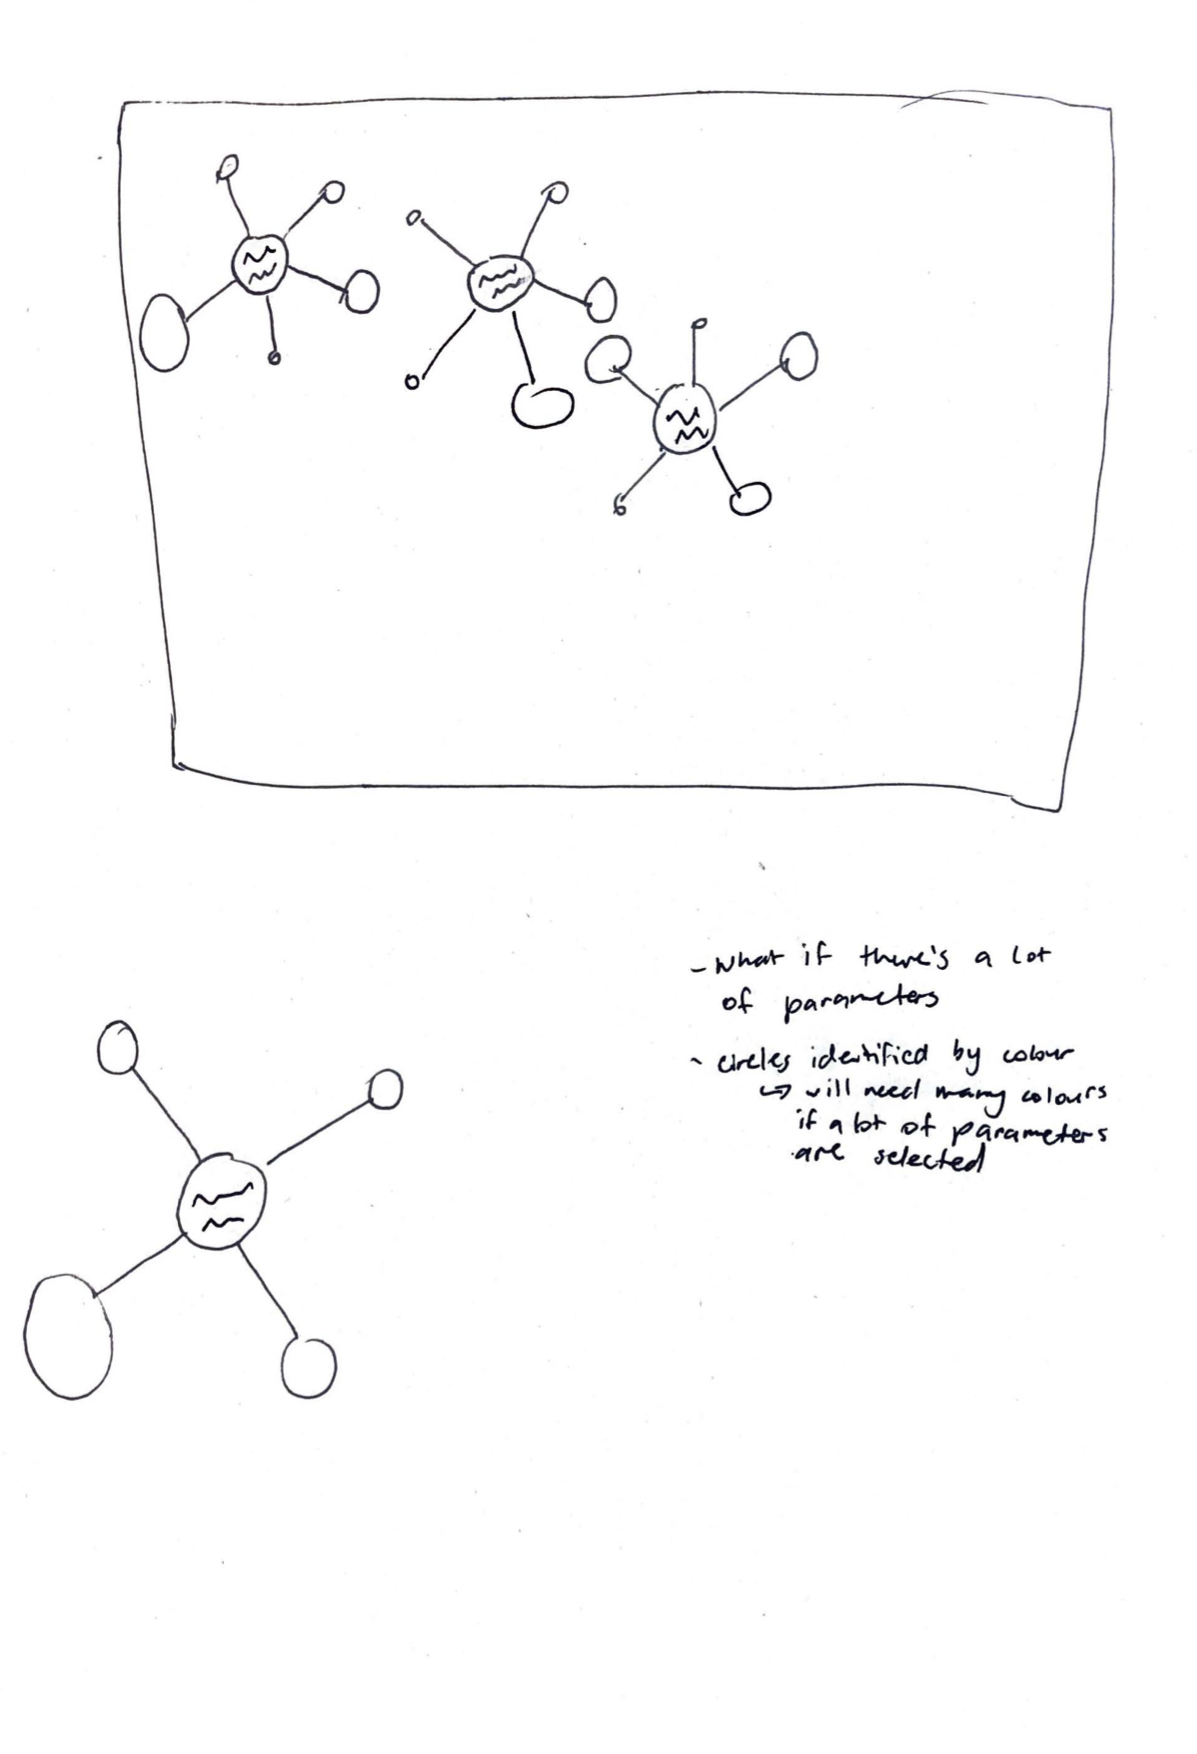 - What if there's a lot
of parameters
- circles identified by colour
↳ will need many colours
if a lot of parameters
are selected